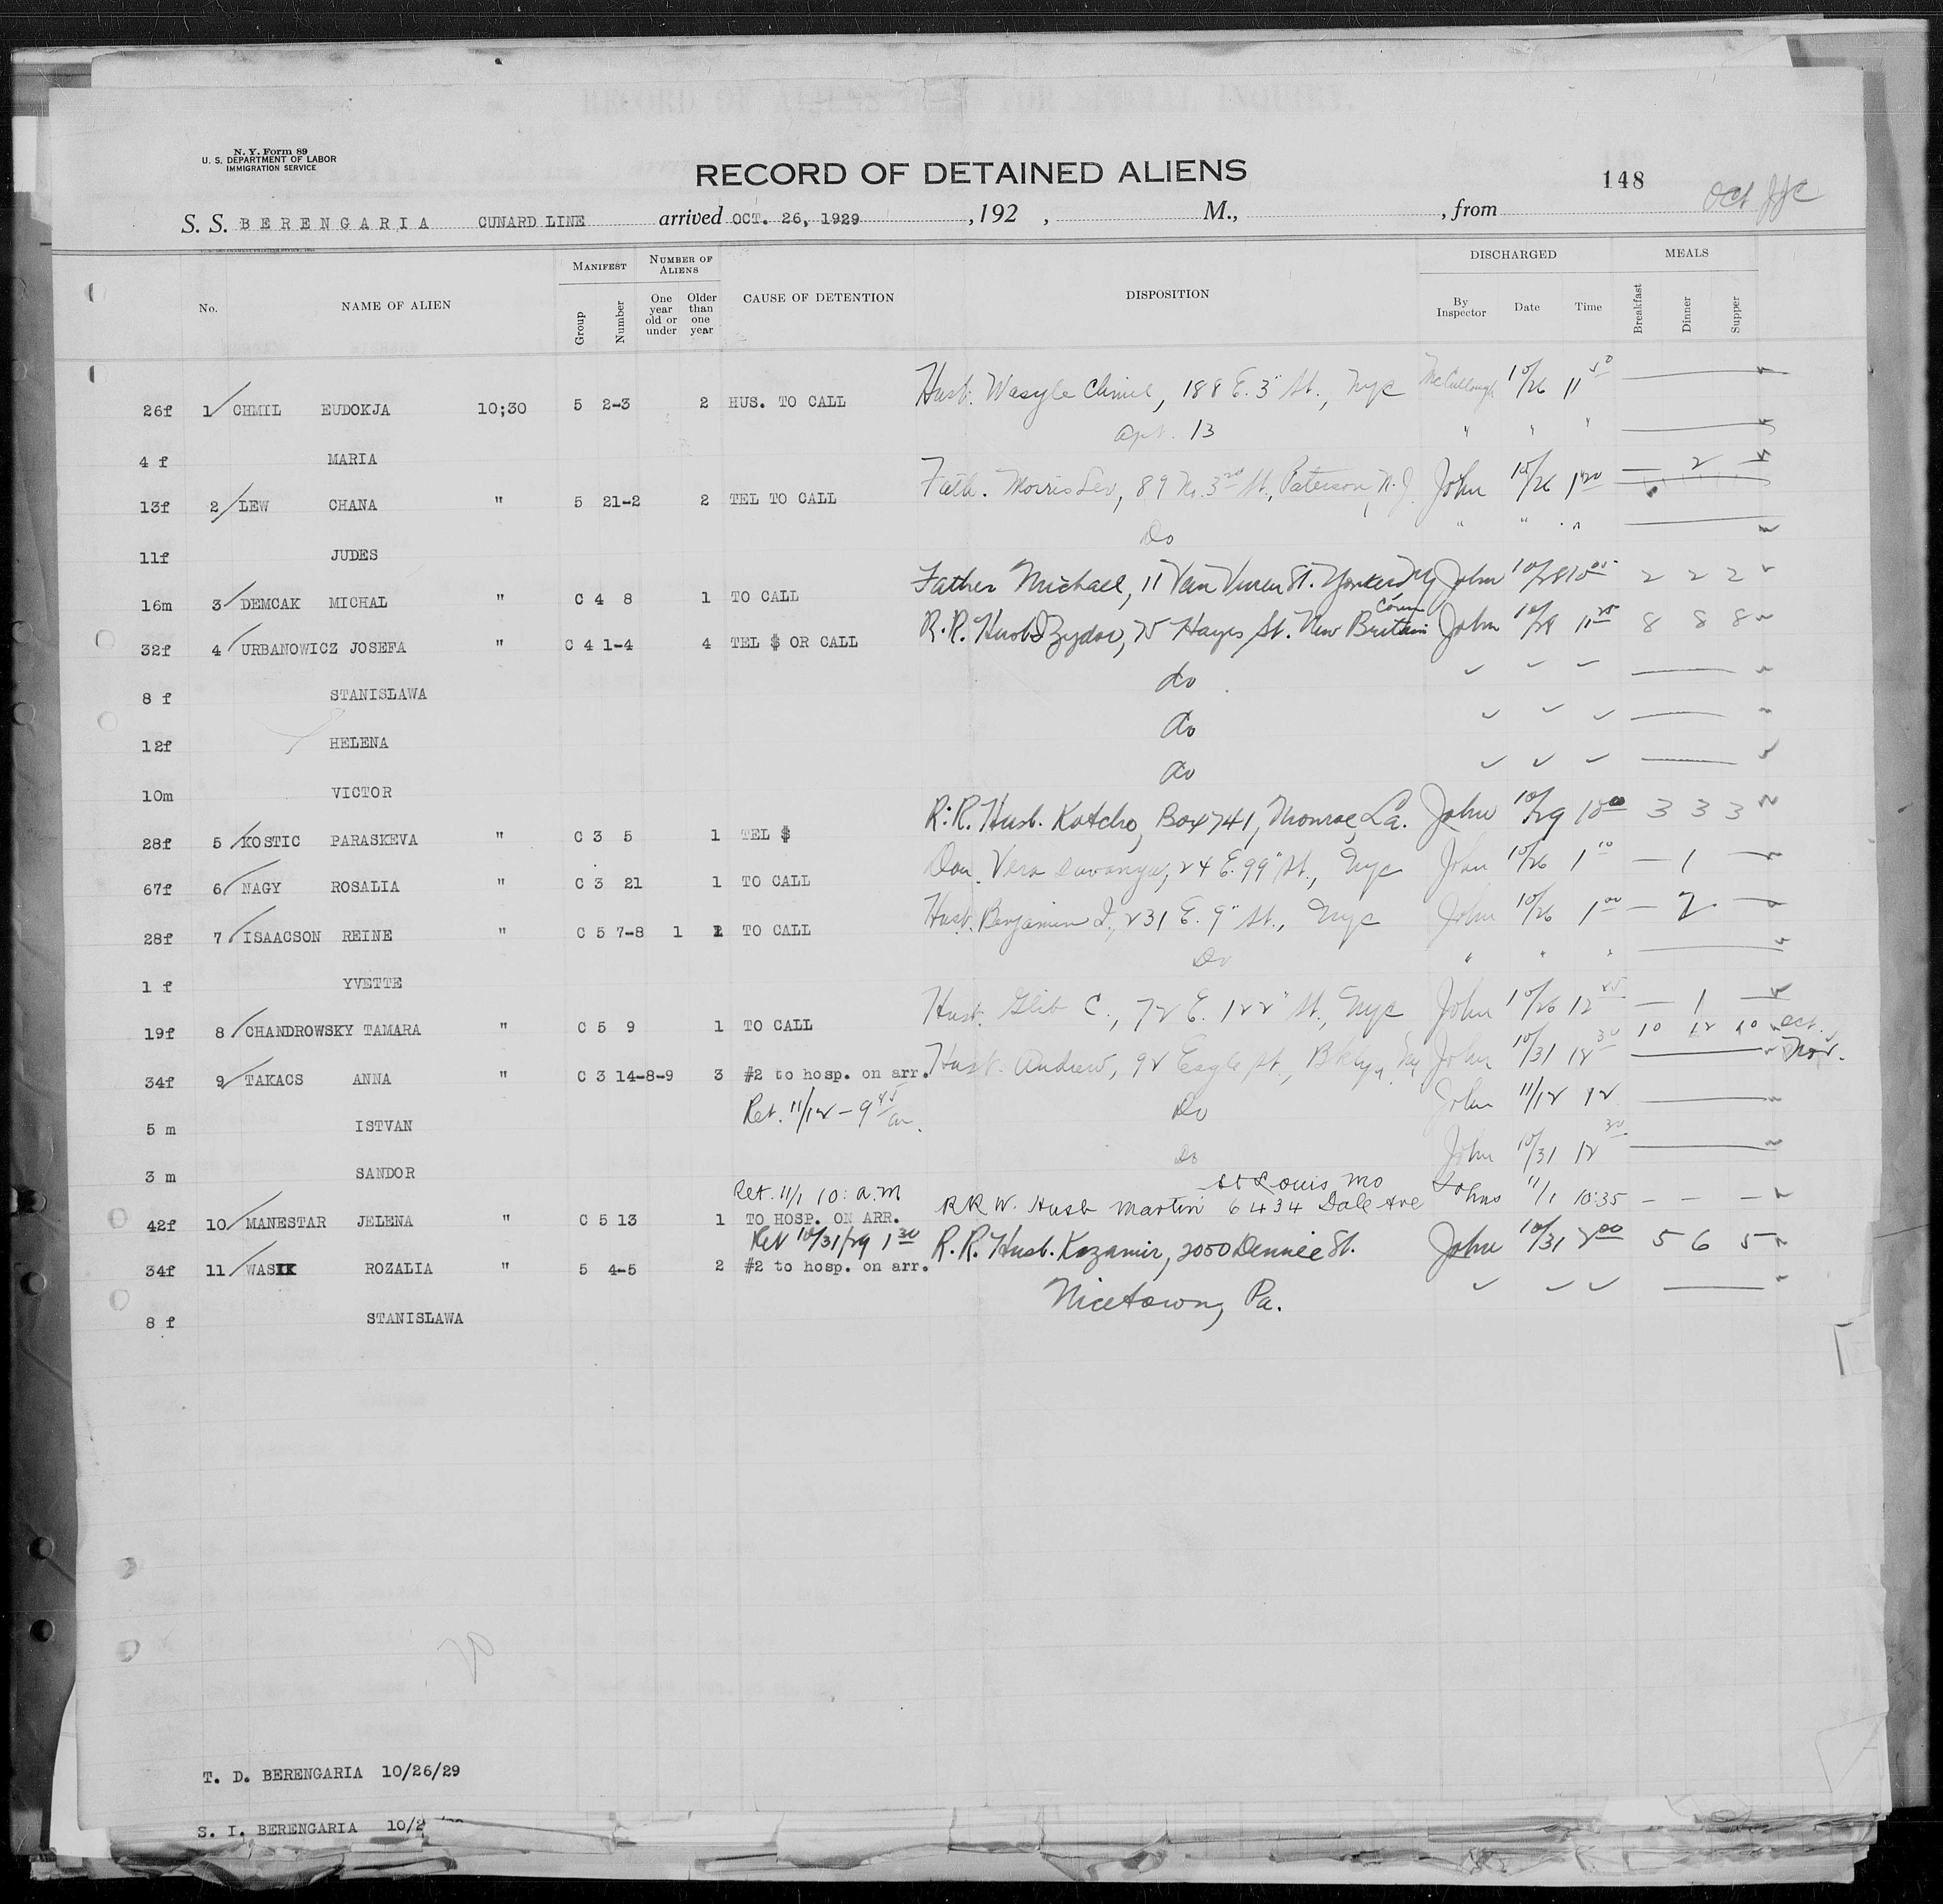 N. Y. Form 89
U. S. DEPARTMENT OF LABOR
IMMIGRATION SERVICE
RECORD OF DETAINED ALIENS
148
Oct
S. S. BERENGARIA CUNARD LINE arrived OCT. 26, 1929, 192 , M., , from
No. NAME OF ALIEN MANIFEST Group Number NUMBER OF ALIENS One year old or under Older than one year CAUSE OF DETENTION DISPOSITION DISCHARGED By Inspector Date Time MEALS Breakfast Dinner Supper
26f 1 CHMIL EUDOKJA 10;30 5 2-3 2 HUS. TO CALL Husb. Wasyle Chmil, 188 E. 3" St., Nyc McCullough 10/26 11 50
Apt. 13 " " "
4 f MARIA
13f 2 LEW CHANA " 5 21-2 2 TEL TO CALL Fath. Morris Lev, 89 No. 3rd St., Paterson, N.J. John 10/26 1 20 — 2 —
Do " " "
11f JUDES
16m 3 DEMCAK MICHAL " C 4 8 1 TO CALL Father Michael, 11 Van Buren St. Yonkers Ny John 10/28 10 2 2 2
32f 4 URBANOWICZ JOSEFA " C 4 1-4 4 TEL $ OR CALL R.R. Husb Izydor, 75 Hayes St. New Britain Conn John 11 8 8 8
8 f STANISLAWA do
12f HELENA do
10m VICTOR do
28f 5 KOSTIC PARASKEVA " C 3 5 1 TEL $ R.R. Husb. Kotcho, Box 741, Monroe, La. John 10/29 10 00 3 3 3
67f 6 NAGY ROSALIA " C 3 21 1 TO CALL Dau. Vera 24 E. 99" St., Nyc John 10/26 1 10 — 1 —
28f 7 ISAACSON REINE " C 5 7-8 1 1 TO CALL Husb. Benjamin I., 231 E. 9" St., Nyc John 10/26 1 00 — 2 —
1 f YVETTE Do " " "
19f 8 CHANDROWSKY TAMARA " C 5 9 1 TO CALL Husb. Glib C., 72 E. 122" St., Nyc John 10/26 12 25 — 1 —
34f 9 TAKACS ANNA " C 3 14-8-9 3 #2 to hosp. on arr. Husb. Andrew, 92 Eagle St., Bklyn, Ny John 10/31 12 30 10 12 10 Oct. Nov.
5 m ISTVAN Ret. 11/12 - 9 45 am. Do John 11/12 12
3 m SANDOR Do John 10/31 12 30
42f 10 MANESTAR JELENA " C 5 13 1 Ret. 11/1 10: a.m TO HOSP. ON ARR. RR W. Husb Martin 6434 Dale Ave St Louis Mo Johns 11/1 10:35 - - -
34f 11 WASIK ROZALIA " 5 4-5 2 Ret 10/31/29 1 30 #2 to hosp. on arr. R.R. Husb. Kazamir, 2050 Dennie St. John 10/31 2 00 5 6 5
8 f STANISLAWA Nicetown, Pa.
T. D. BERENGARIA 10/26/29
S. I. BERENGARIA 10/2